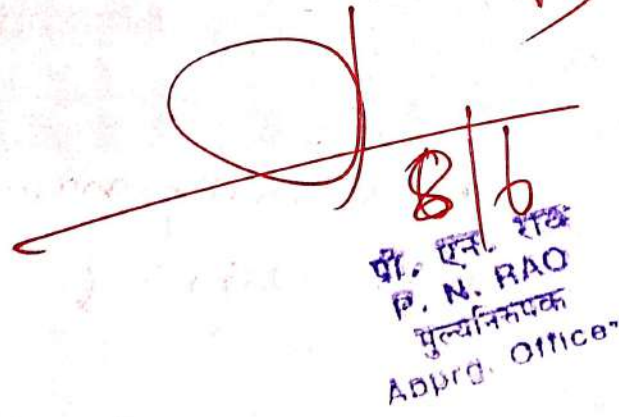 8/6
पी. एन. राव
P. N. RAO
मुल्यनिरुपक
Apprg. Officer